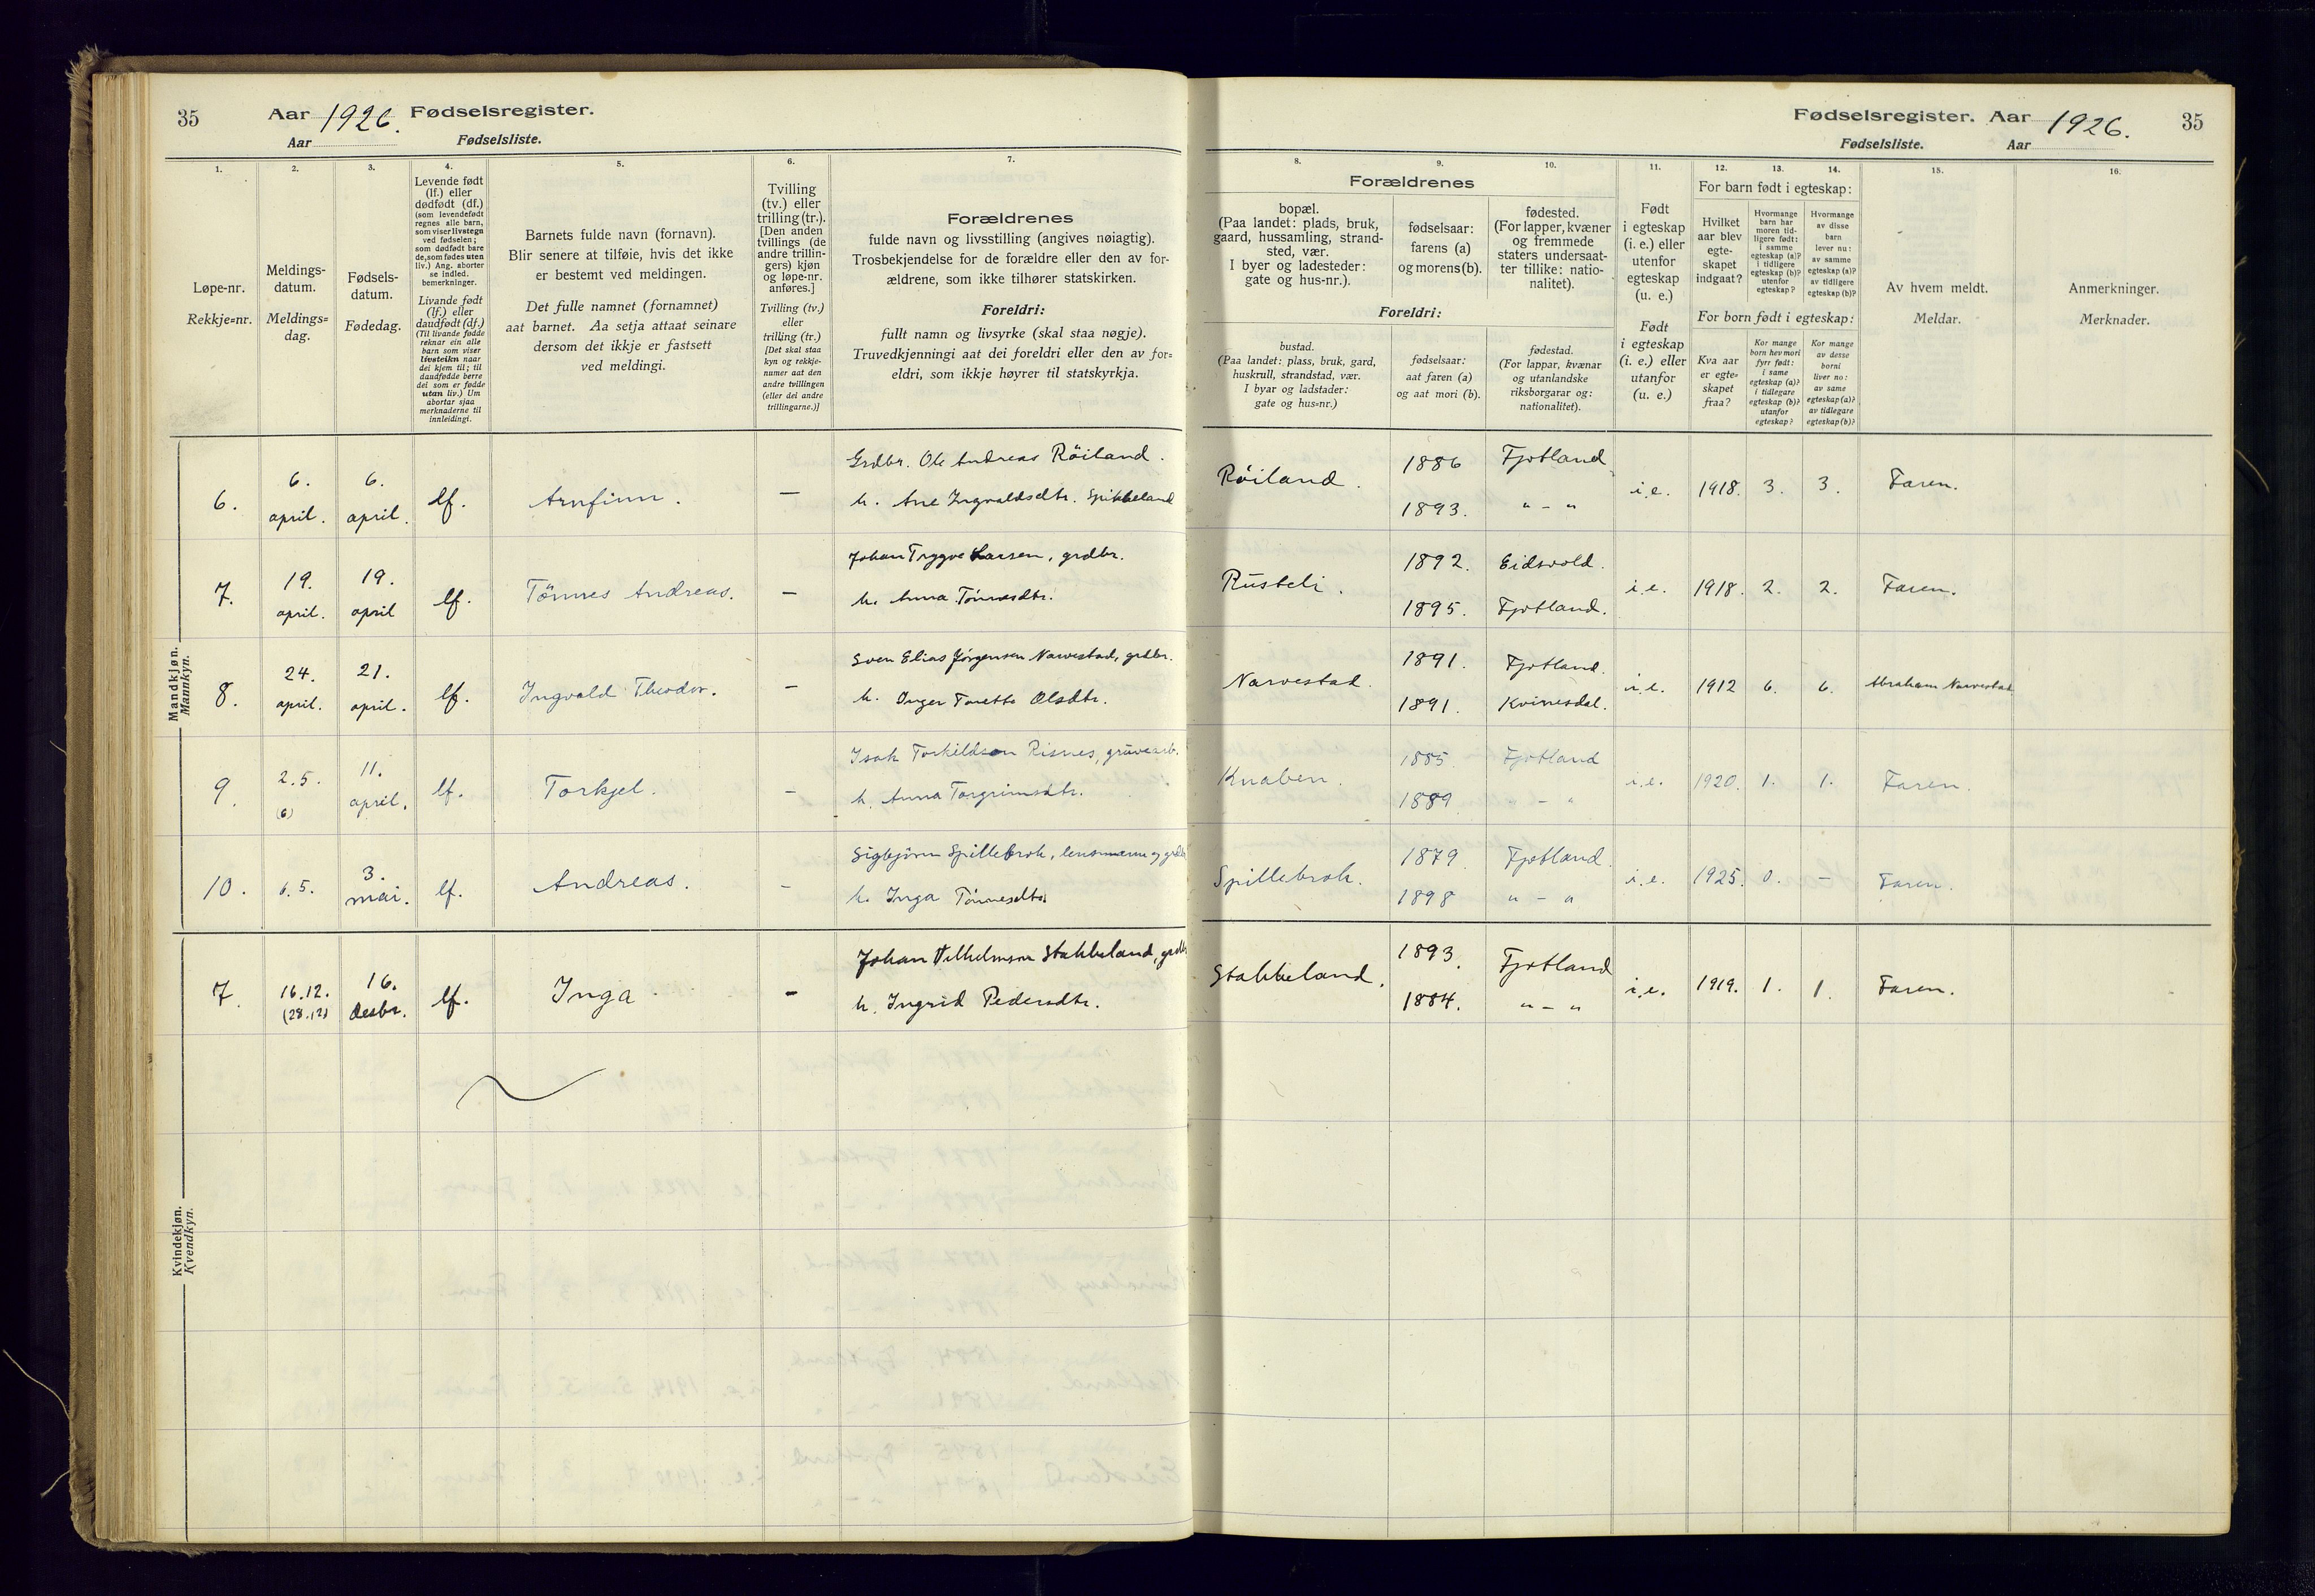 35
Aar 1926. Fødselsregister.
Aar Fødselsliste.
1.
2.
3.
4.
5.
6.
7.
Løpe-nr.
Rekkje=nr.
Meldings-
datum.
Meldings=
dag.
Fødsels-
datum.
Fødedag.
Levende født
(lf.) eller
dødfødt (df.)
(som levendefødt
regnes alle barn,
som viser livstegn
ved fødselen;
som dødfødt bare
de, som fødes uten
liv.) Ang. aborter
se indled.
bemerkninger.
Livande født
(lf.) eller
daudfødt (df.)
(Til livande fødde
reknar ein alle
barn som viser
livsteikn naar
dei kjem til; til
daudfødde berre
dei som er fødde
utan liv.) Um
abortar sjaa
merknaderne til
innleidingi.
Barnets fulde navn (fornavn).
Blir senere at tilføie, hvis det ikke
er bestemt ved meldingen.
Det fulle namnet (fornamnet)
aat barnet. Aa setja attaat seinare
dersom det ikkje er fastsett
ved meldingi.
Tvilling
(tv.) eller
trilling (tr.).
[Den anden
tvillings (de
andre trillin-
gers) kjøn
og løpe-nr.
anføres.]
Tvilling (tv.)
eller
trilling (tr.)
[Det skal staa
kyn og rekkje-
numer aat den
andre tvillingen
(eller dei andre
trillingarne.)]
Forældrenes
fulde navn og livsstilling (angives nøiagtig).
Trosbekjendelse for de forældre eller den av for-
ældrene, som ikke tilhører statskirken.
Foreldri:
fullt namn og livsyrke (skal staa nøgje).
Truvedkjenningi aat dei foreldri eller den av for=
eldri, som ikkje høyrer til statskyrkja.
Mandkjøn.
Mannkyn.
6. 6. april. 6. april. lf. Arnfinn. — Grdbr. Ole Andreas Röiland.
h. Ane Ingvaldsdtr. Spikkeland
7. 19. april. 19. april lf. Tönnes Andreas. — Johan Trygve Larsen, grdbr.
h. Anna Tönnesdtr.
8. 24. april. 21. april. lf. Ingvald Theodor. — Sven Elias Jörgensen Narvestad, grdbr.
h. Inger Toretta Olsdtr.
9. 2.5. (6) 11. april. lf. Torkjel. — Isak Torkildsen Risnes, gruvearb.
h. Anna Torgrimsdtr.
10. 6.5. 3. mai. lf. Andreas. — Sigbjörn Spillebrok, lensmann og grdbr
h. Inga Tönnesdtr.
Kvindekjøn.
Kvendkyn.
7. 16.12. (28.12) 16. desbr. lf. Inga. — Johan Vilhelmsen Stakkeland, grdbr
h. Ingrid Pedersdtr.
Fødselsregister. Aar 1926. 35
Fødselsliste. Aar
8.
9.
10.
11.
12.
13.
14.
15.
16.
Forældrenes
bopæl.
(Paa landet: plads, bruk,
gaard, hussamling, strand-
sted, vær.
I byer og ladesteder:
gate og hus-nr.).
fødselsaar:
farens (a)
og morens (b).
fødested.
(For lapper, kvæner
og fremmede
staters undersaat-
ter tillike: natio-
nalitet).
Foreldri:
bustad.
(Paa landet: plass, bruk, gard,
huskrull, strandstad, vær.
I byar og ladstader:
gate og hus-nr.)
fødselsaar:
aat faren (a)
og aat mori (b).
fødestad.
(For lappar, kvænar
og utanlandske
riksborgarar og:
nationalitet).
Født
i egteskap
(i. e.) eller
utenfor
egteskap
(u. e.)
Født
i egteskap
(i. e.) eller
utanfor
(u. e.)
For barn født i egteskap:
Hvilket
aar blev
egte-
skapet
indgaat?
Hvormange
barn har
moren tid-
ligere født:
i samme
egteskap (a)?
i tidligere
egteskap (b)?
utenfor
egteskap?
Hvormange
av disse
barn
lever nu:
av samme
egteskap (a)?
av tidligere
egteskap (b)?
For born født i egteskap:
Kva aar
er egte=
skapet
fraa?
Kor mange
born hev mori
fyrr født:
i same
egteskap (a)?
i tidlegare
egteskap (b)?
utanfor
egteskap?
Kor mange
av desse
borni
liver no:
av same
egteskap (a)?
av tidlegare
egteskap (b)?
Av hvem meldt.
Meldar.
Anmerkninger.
Merknader.
Röiland. 1886 Fjotland i.e. 1918. 3. 3. Faren.
1893. " - "
Rüsteli. 1892. Eidsvold. i.e. 1918. 2. 2. Faren.
1895. Fjotland.
Narvestad. 1891. Fjotland. i.e. 1912 6. 6. Abraham Narvestad
1891. Kvinesdal.
Knaben. 1885. Fjotland i.e. 1920. 1. 1. Faren.
1889 " - "
Spillebrok. 1879. Fjotland. i.e. 1925. 0. - Faren.
1898 " - "
Stakkeland. 1893. Fjotland i.e. 1919. 1. 1. Faren.
1884. " - "